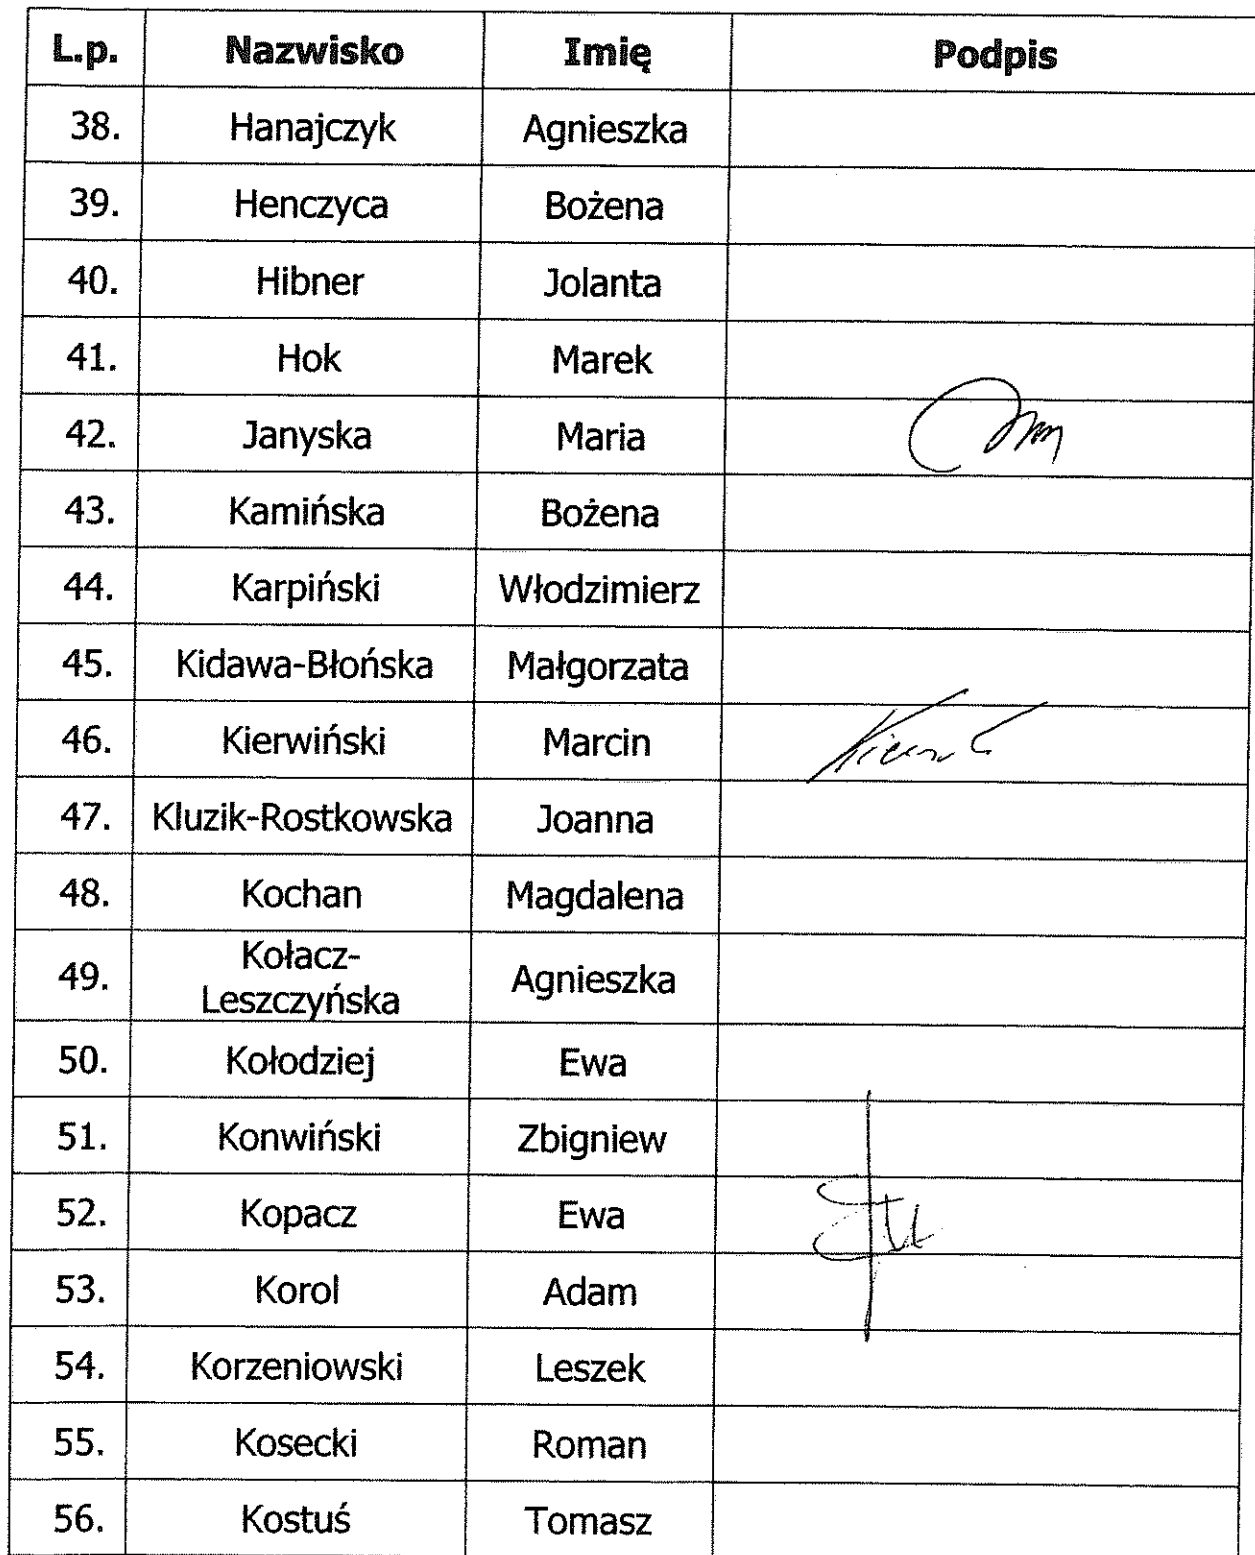 L.p. Nazwisko Imię Podpis
38. Hanajczyk Agnieszka
39. Henczyca Bożena
40. Hibner Jolanta
41. Hok Marek
42. Janyska Maria
43. Kamińska Bożena
44. Karpiński Włodzimierz
45. Kidawa-Błońska Małgorzata
46. Kierwiński Marcin
47. Kluzik-Rostkowska Joanna
48. Kochan Magdalena
49. Kołacz-
Leszczyńska Agnieszka
50. Kołodziej Ewa
51. Konwiński Zbigniew
52. Kopacz Ewa
53. Korol Adam
54. Korzeniowski Leszek
55. Kosecki Roman
56. Kostuś Tomasz